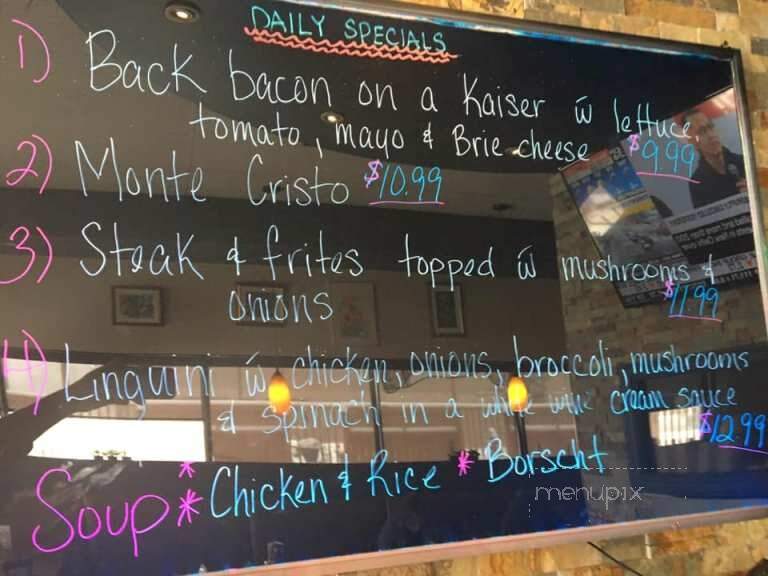 DAILY SPECIALS
1) Back bacon on a Kaiser w̄ lettuce,
tomato, mayo & Brie cheese $9.99
2) Monte Cristo $10.99
3) Steak & frites topped w̄ mushrooms &
onions $11.99
4) Linguini w̄ chicken, onions, broccoli, mushrooms
& spinach in a white wine cream sauce
$12.99
Soup * * Chicken & Rice * Borscht
menupix